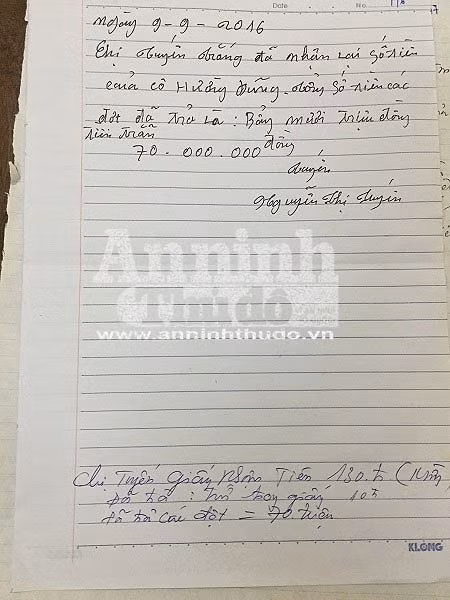 Date
No
ngày 9-9-2016
Chị Luyến trắng đã nhận lại số tiền
của cô Hường Dũng tổng số tiền các
đợt đã trả là: Bảy mươi triệu đồng
tiền trẵn
70.000.000 đồng
Luyến
Nguyễn thị Luyến
An ninh
thủ đô
www.anninhthudo.vn
chị Tuyến Giấy Nhận Tiền 130.tr
Đã trả: trong giấy 10tr
Đã trả các đợt = 70. triệu
KLONG